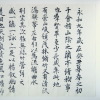 永和九年歲在癸丑暮春之初會
于會稽山陰之蘭亭脩稧事
也群賢畢至少長咸集此地
有崇山峻領茂林脩竹又有清流激
湍暎帶左右引以為流觴曲水
列坐其次雖無絲竹管弦之
盛一觴一詠亦足以暢敘幽情